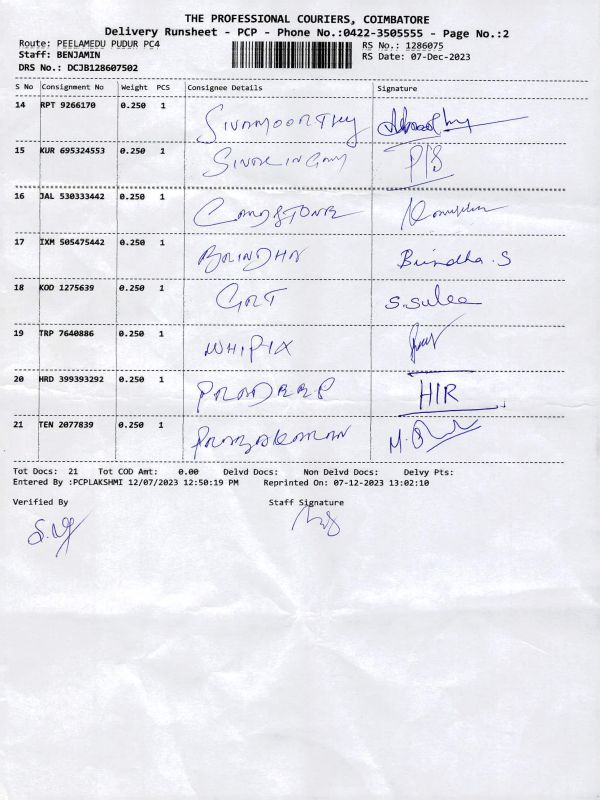 THE PROFESSIONAL COURIERS, COIMBATORE
Delivery Runsheet - PCP - Phone No.:0422-3505555 - Page No.:2
Route: PEELAMEDU PUDUR PC4 RS No.: 1286075
Staff: BENJAMIN RS Date: 07-Dec-2023
DRS No.: DCJB128607502
S No Consignment No Weight PCS Consignee Details Signature
14 RPT 9266170 0.250 1 SIVAMOORTHY
15 KUR 695324553 0.250 1 SIVALINGAM
16 JAL 530333442 0.250 1
17 IXM 505475442 0.250 1 BRINDHA Brindha.S
18 KOD 1275639 0.250 1 GRT S.Sulea
19 TRP 7640886 0.250 1 WHIPIX
20 HRD 399393292 0.250 1 PRADEEP HIR
21 TEN 2077839 0.250 1 PRABAKARAN
Tot Docs: 21 Tot COD Amt: 0.00 Delvd Docs: Non Delvd Docs: Delvy Pts:
Entered By :PCPLAKSHMI 12/07/2023 12:50:19 PM Reprinted On: 07-12-2023 13:02:10
Verified By Staff Signature